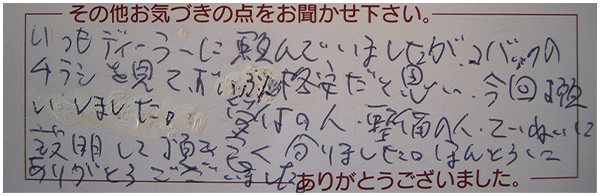 その他お気づきの点をお聞かせ下さい。
いつもディーラーに頼んでいましたが、コバックの
チラシを見て、ずいぶん格安だと思い、今回お願
いしました。 受付の人・整備の人・ていねいに
説明して頂きよく分りました。ほんとうに
ありがとうございました
ありがとうございました。